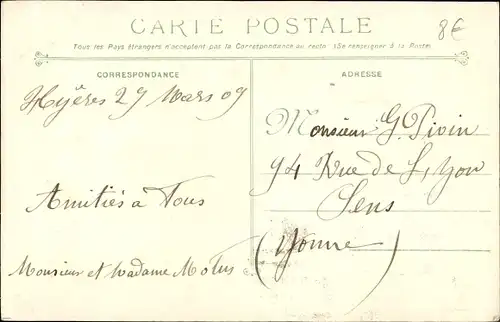 CARTE POSTALE
8€
Tous les Pays étrangers n'acceptent pas la Correspondance au recto (Se renseigner à la Poste)
CORRESPONDANCE
Hyères 27 Mars 09
Amitiés à Tous
Monsieur et Madame
ADRESSE
Monsieur G. Pivin
94 Rue de Lyon
Sens
(Yonne)